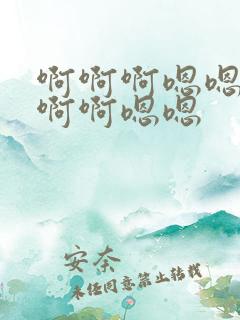 啊啊啊嗯嗯
啊啊嗯嗯
安奈
未经同意禁止转载